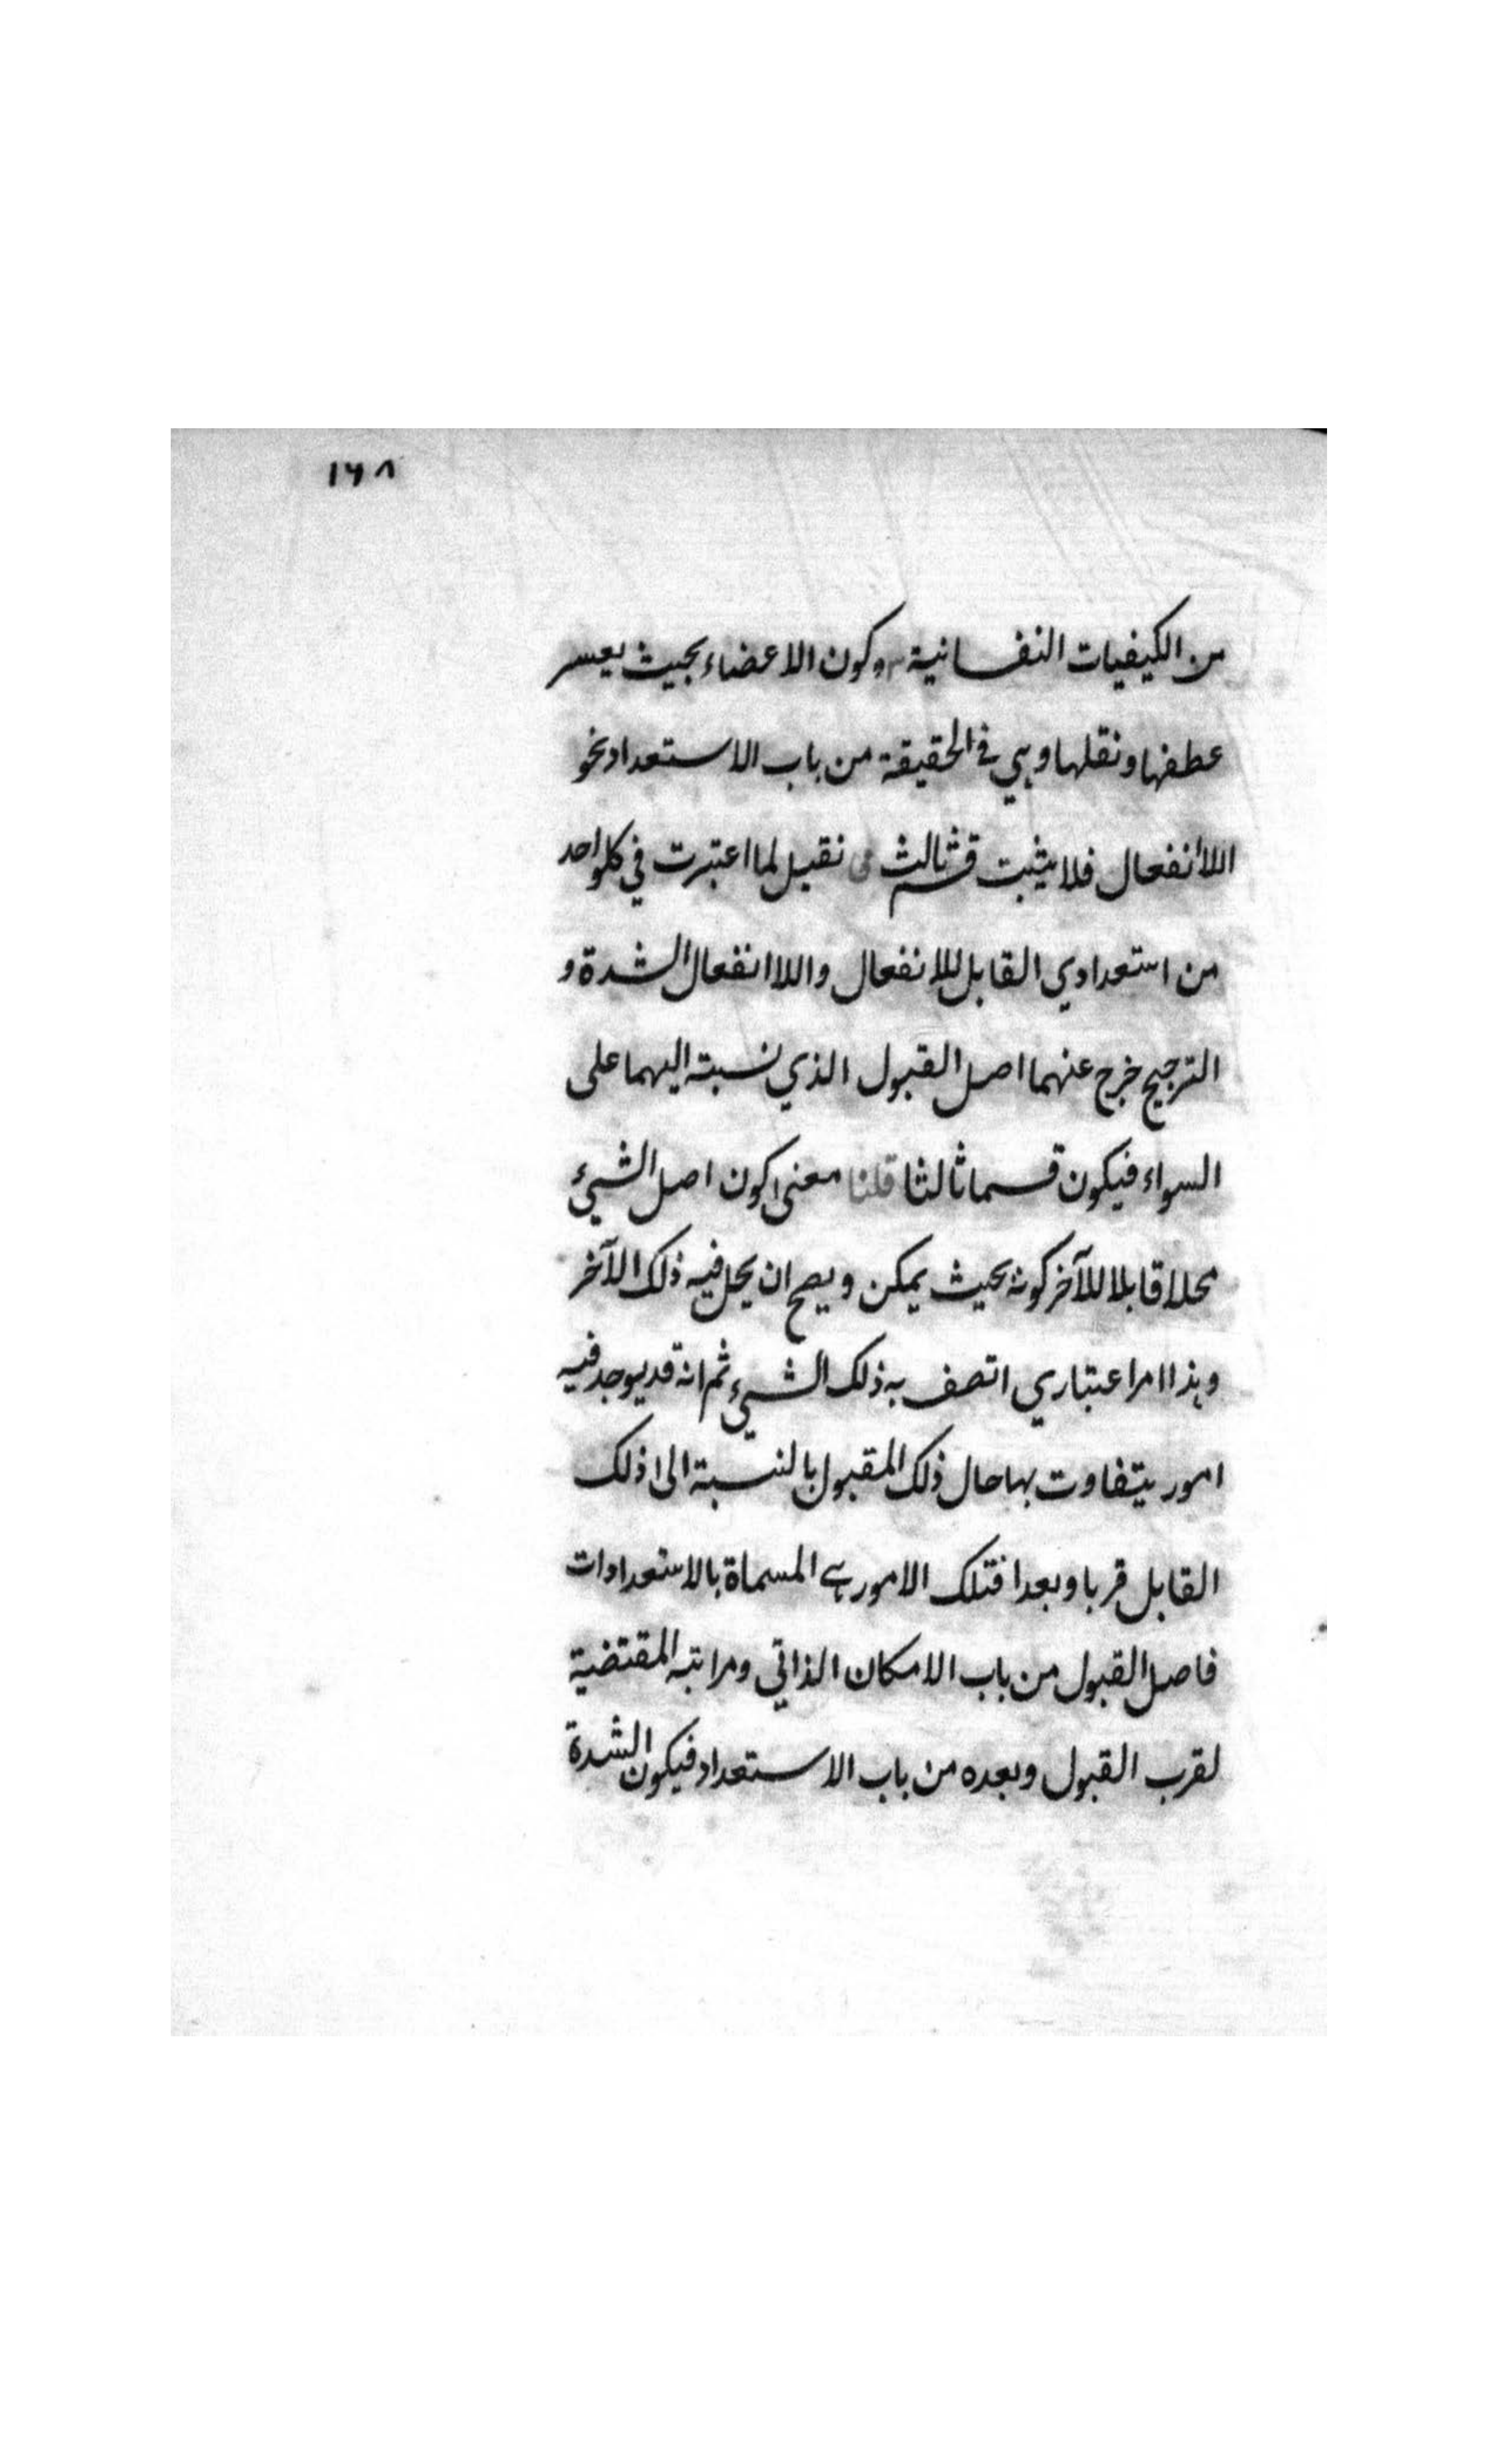 ١٦٨
من الكيفيات النفسانية وكون الاعضاء بحيث يعسر
عطفها ونقلها وهي في الحقيقة من باب الاستعداد نحو
اللاانفعال فلا يثبت قسم ثالث نقيل لما اعتبرت في كل واحد
من استعدادي القابل للانفعال واللاانفعال الشدة و
الترجيح خرج عنهما اصل القبول الذي نسبته اليهما على
السواء فيكون قسما ثالثا قلنا معنى كون اصل الشيء
محلا قابلا للآخر كونه بحيث يمكن ويصح ان يحل فيه ذلك الآخر
وهذا امر اعتباري اتصف به ذلك الشيء ثم انه قد يوجد فيه
امور يتفاوت بها حال ذلك المقبول بالنسبة الى ذلك
القابل قربا وبعدا فتلك الامور هي المسماة بالاستعدادات
فاصل القبول من باب الامكان الذاتي ومراتبه المقتضية
لقرب القبول وبعده من باب الاستعداد فيكون الشدة